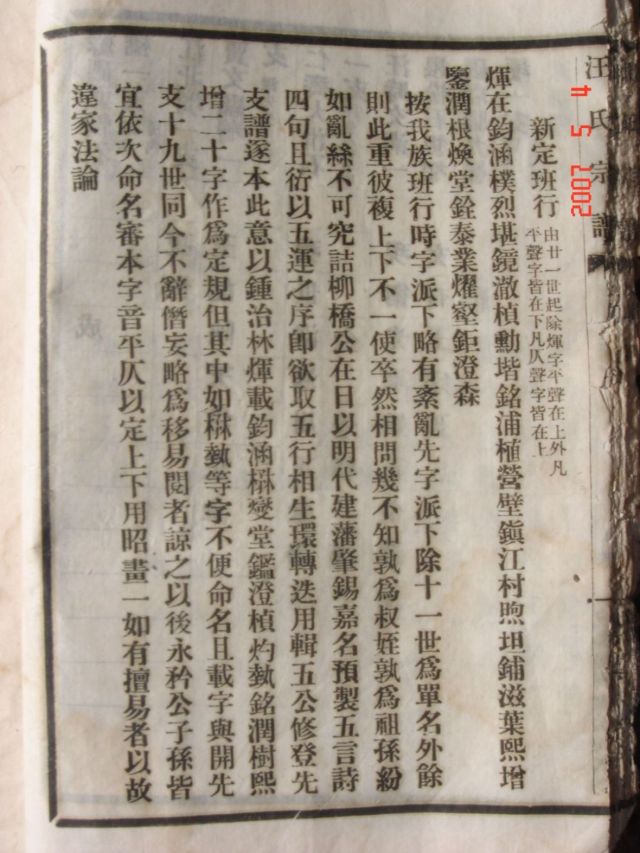 汪氏宗譜
新定班行
由廿一世起除煇字平聲在上外凡
平聲字皆在下凡仄聲字皆在上
煇在鈞涵樸烈堪鏡澈楨勳堦銘浦植營壁鎮江村煦坦鋪滋葉熙增
鑒潤根煥堂銓泰業燿壑鉅澄森
按我族班行時字派下略有紊亂先字派下除十一世為單名外餘
則此重彼複上下不一使卒然相問幾不知孰為叔姪孰為祖孫紛
如亂絲不可究詰柳橋公在日以明代建藩肇錫嘉名預製五言詩
四句且衍以五運之序卽欲取五行相生環轉迭用輯五公修登先
支譜遂本此意以鍾治林煇載鈞涵楙變堂鑑澄楨灼埶銘潤樹熙
增二十字作為定規但其中如楙埶等字不便命名且載字與開先
支十九世同今不辭僭妄略為移易閱者諒之以後永矜公子孫皆
宜依次命名審本字音平仄以定上下用昭畫一如有擅易者以故
違家法論
2007 5 4